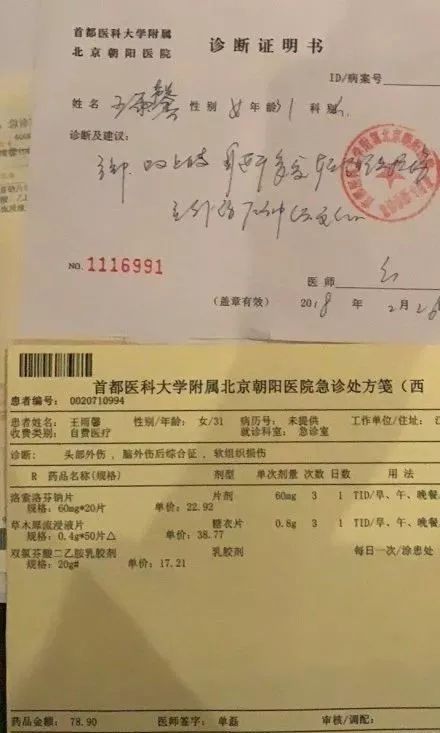 首都医科大学附属
北京朝阳医院
诊断证明书
ID/病案号
姓名 王雨馨 性别 女 年龄 31 科别
诊断及建议:
NO. 1116991
医师
(盖章有效) 2018 年 2月26
首都医科大学附属北京朝阳医院急诊处方笺(西
患者编号: 0020710994
患者姓名: 王雨馨 性别/年龄: 女/31 病历号: 未提供 工作单位/住址: 江
收费类别: 自费医疗 就诊科室: 急诊室
诊断: 头部外伤, 脑外伤后综合征, 软组织损伤
R 药品名称(规格) 剂型 单次剂量 次数 日数 用法
洛索洛芬钠片 片剂 60mg 3 1 TID/早、午、晚餐
规格: 60mg*20片 单价: 22.92
草木犀流浸液片 糖衣片 0.8g 3 1 TID/早、午、晚餐
规格: 0.4g*50片△ 单价: 38.77
双氯芬酸二乙胺乳胶剂 乳胶剂 每日一次/涂患处
规格: 20g# 单价: 17.21
药品金额: 78.90 医师签字: 单磊 审核/调配: